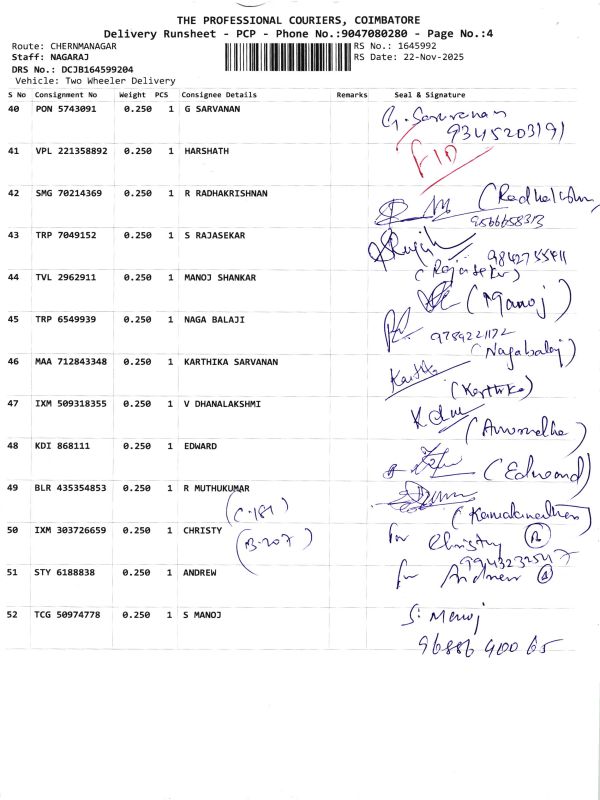 THE PROFESSIONAL COURIERS, COIMBATORE
Delivery Runsheet - PCP - Phone No.:9047080280 - Page No.:4
Route: CHERNMANAGAR RS No.: 1645992
Staff: NAGARAJ RS Date: 22-Nov-2025
DRS No.: DCJB164599204
Vehicle: Two Wheeler Delivery
S No Consignment No Weight PCS Consignee Details Remarks Seal & Signature
40 PON 5743091 0.250 1 G SARVANAN G. Sarvanan
9345203191
41 VPL 221358892 0.250 1 HARSHATH FID
42 SMG 70214369 0.250 1 R RADHAKRISHNAN
43 TRP 7049152 0.250 1 S RAJASEKAR
(Rajasekar)
44 TVL 2962911 0.250 1 MANOJ SHANKAR (Manoj)
45 TRP 6549939 0.250 1 NAGA BALAJI
(Nagabalaj)
46 MAA 712843348 0.250 1 KARTHIKA SARVANAN Karthika
(Karthika)
47 IXM 509318355 0.250 1 V DHANALAKSHMI
48 KDI 868111 0.250 1 EDWARD (Edward)
49 BLR 435354853 0.250 1 R MUTHUKUMAR
(C-181)
50 IXM 303726659 0.250 1 CHRISTY (B-207) for Christy
51 STY 6188838 0.250 1 ANDREW for Andrew
52 TCG 50974778 0.250 1 S MANOJ S. Manoj
96886 400 65